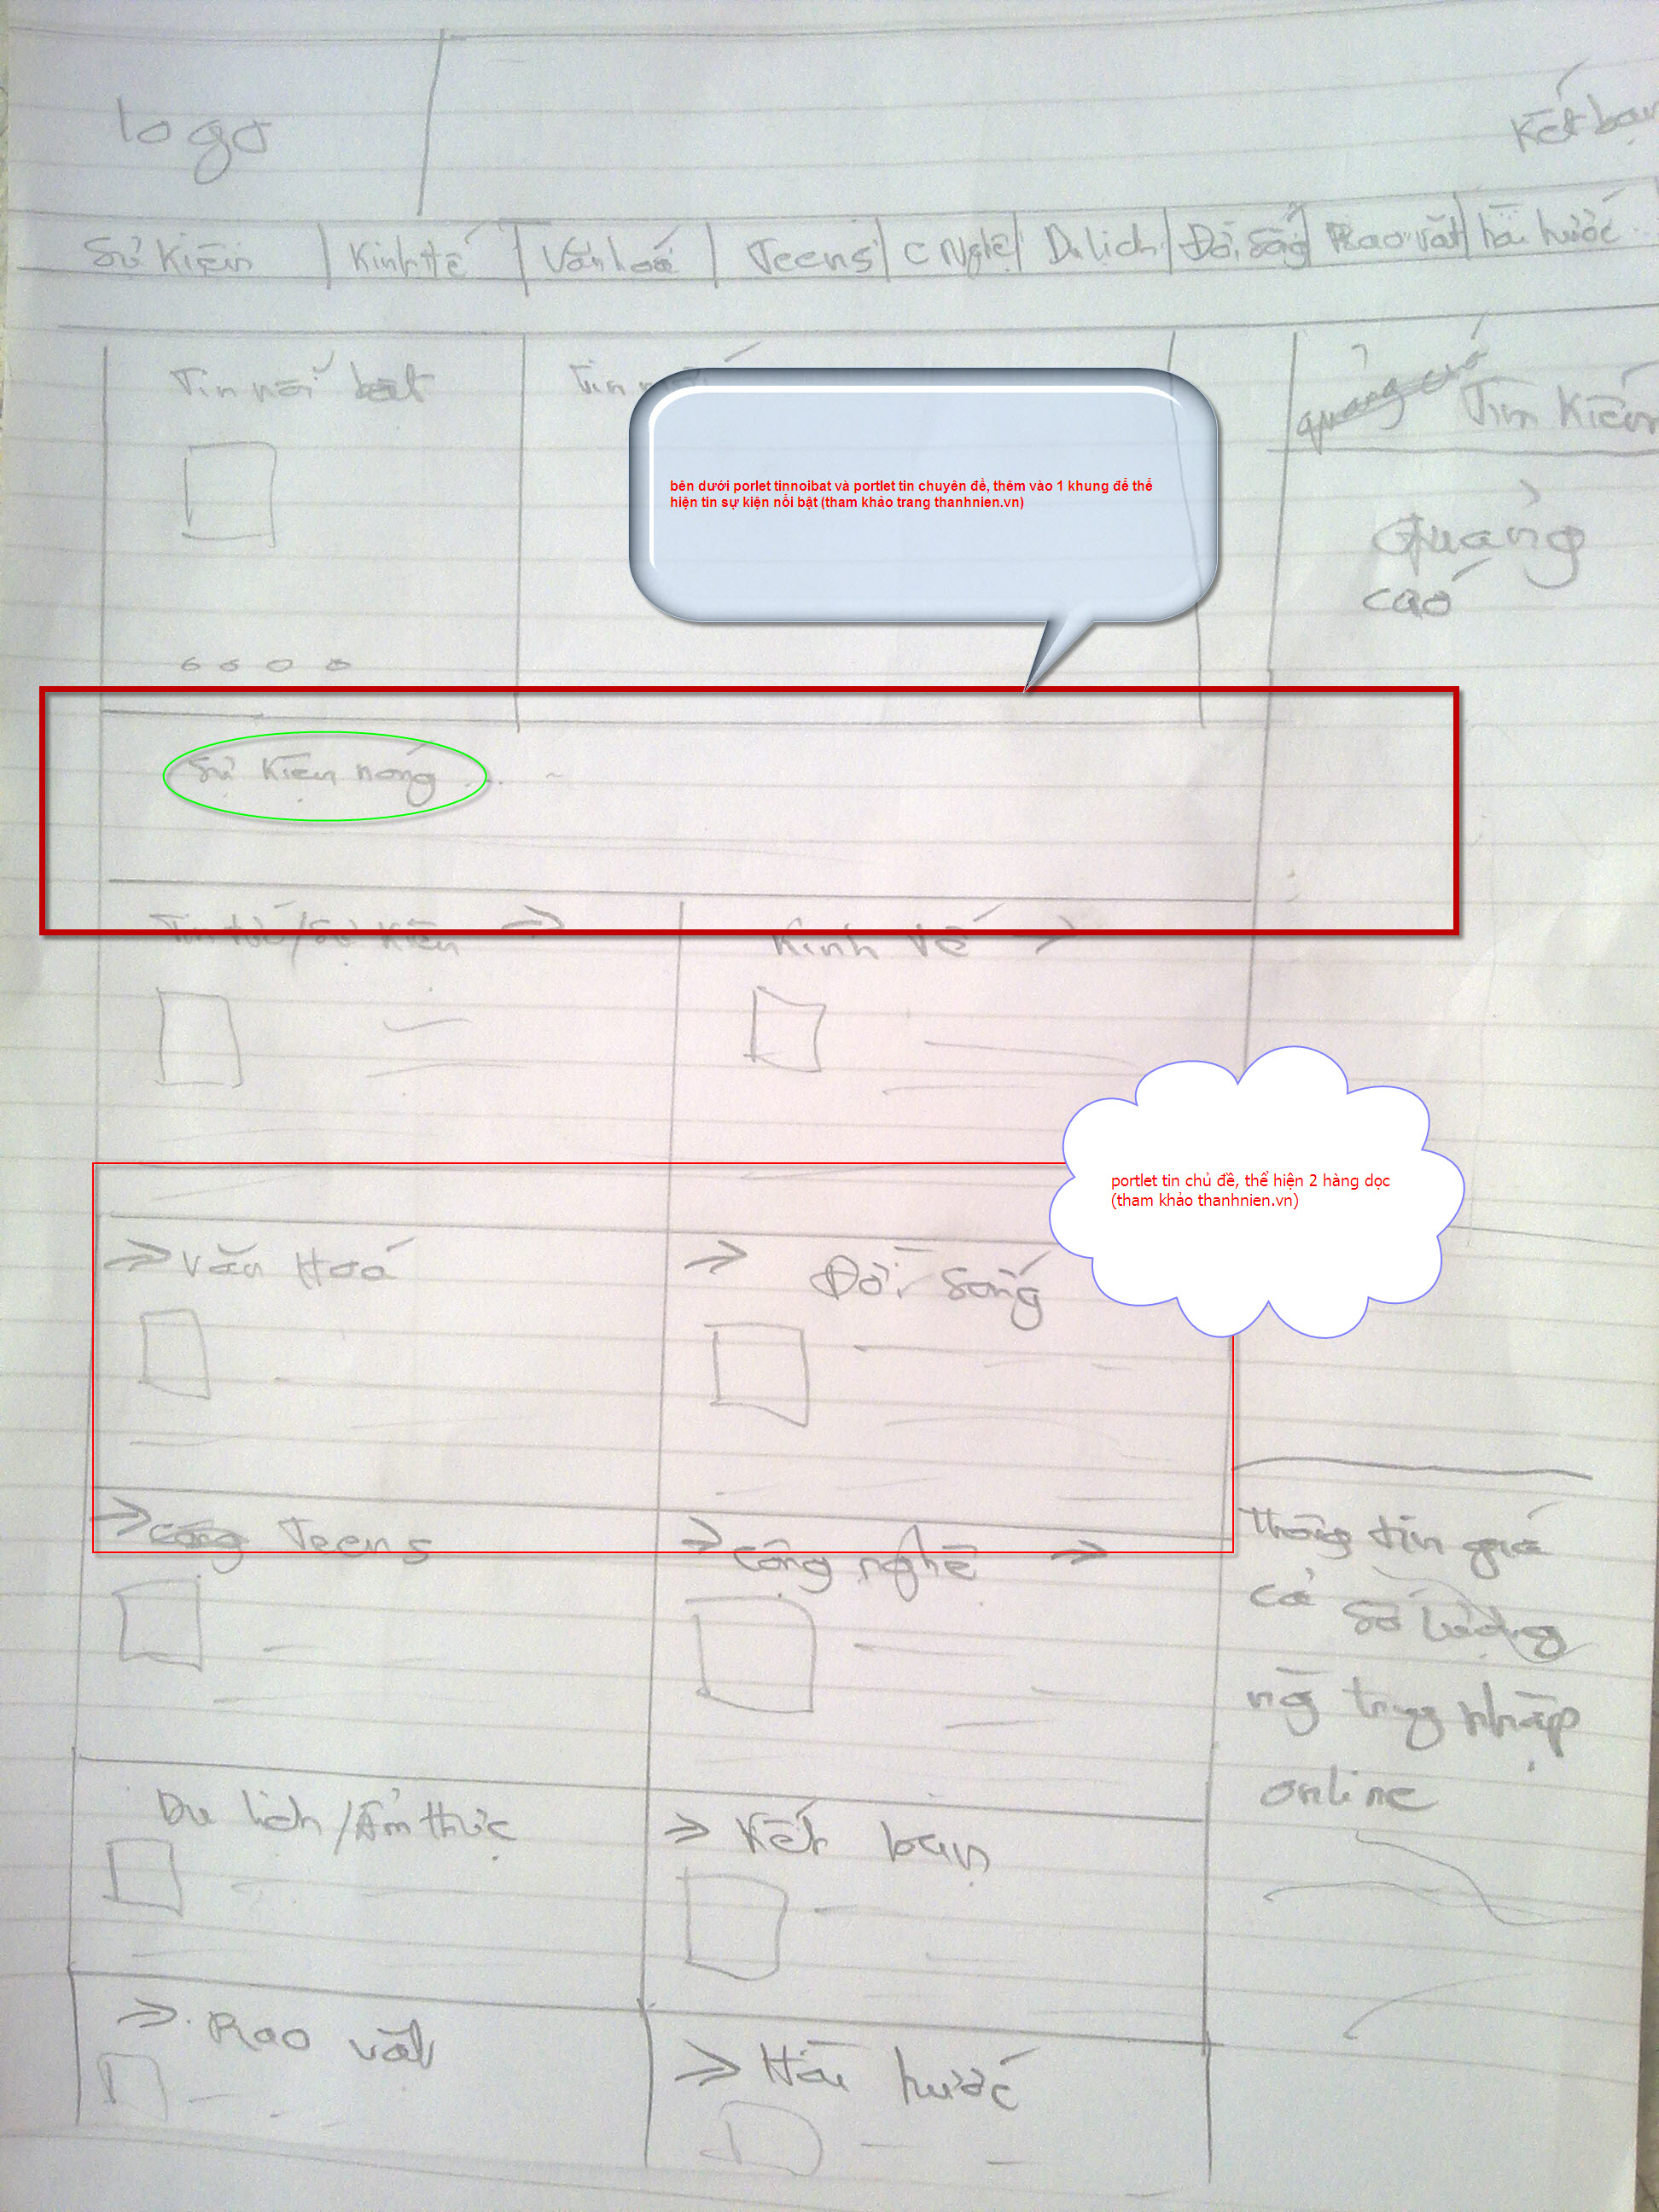 logo
Kết bạn
Sự Kiện
Kinh tế
Văn hoá
Teens
C Nghệ
Du lịch
Đời Sống
Rao vặt
hài hước
Tin nổi bật
Tin
quảng cáo
Tìm Kiếm
bên dưới porlet tinnoibat và portlet tin chuyên đề, thêm vào 1 khung để thể
hiện tin sự kiện nổi bật (tham khảo trang thanhnien.vn)
Quảng
cáo
Sự Kiện nóng
Tin tức/Sự Kiện
Kinh tế
portlet tin chủ đề, thể hiện 2 hàng dọc
(tham khảo thanhnien.vn)
Văn Hoá
Đời Sống
công Teens
công nghệ
Thông tin giá
cả Số lượng
ng truy nhập
online
Du lịch/Ẩm thực
Kết bạn
Rao vặt
Hài hước